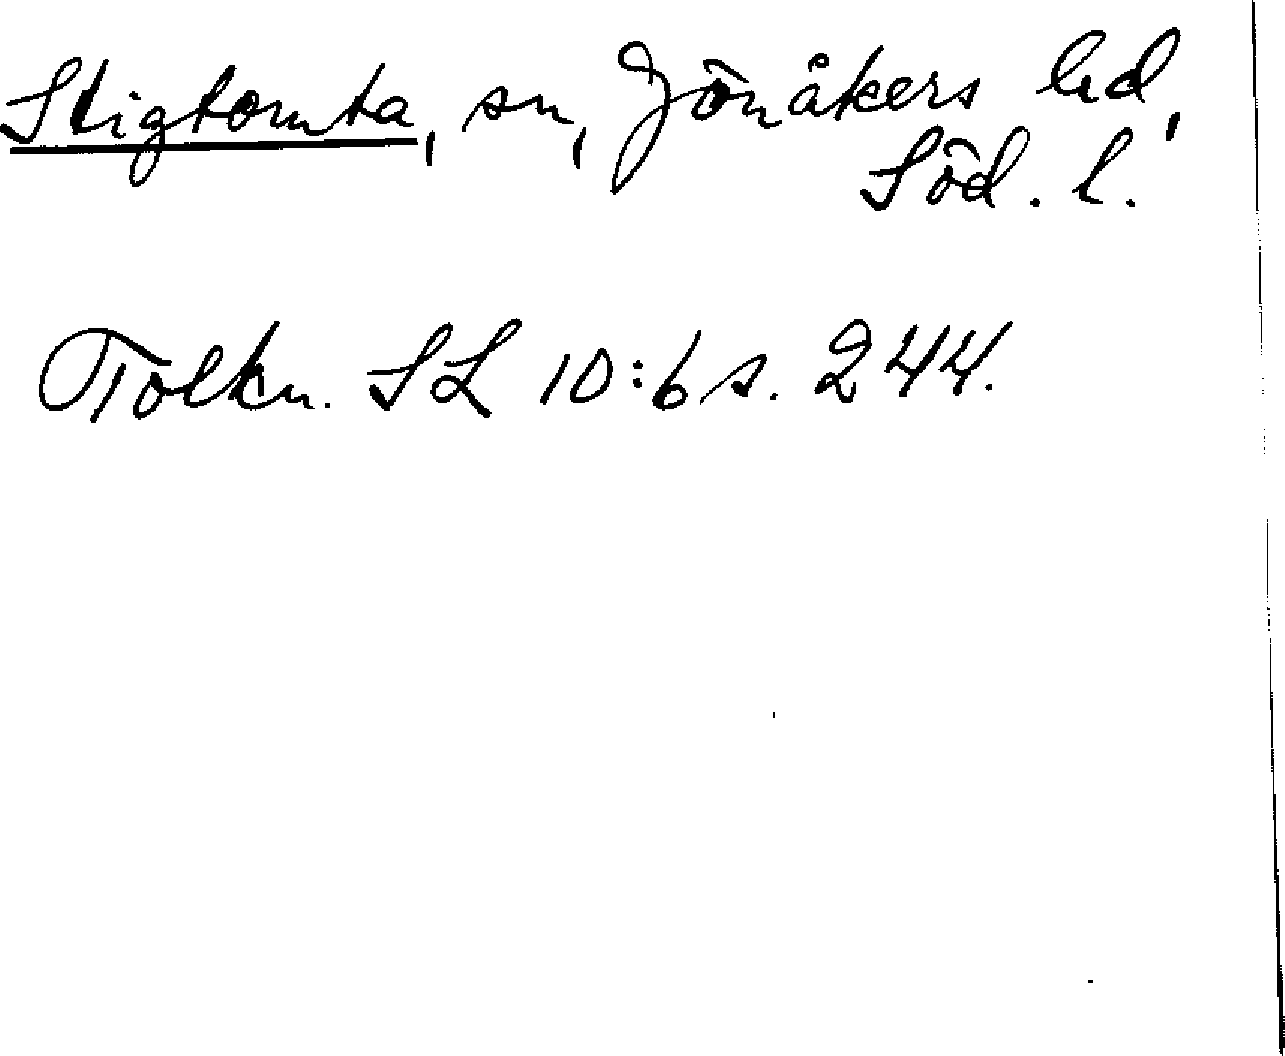 Stigtomta, sn, Jönåkers hd,
Söd. l.
Tolkn. SL 10:6 s. 244.